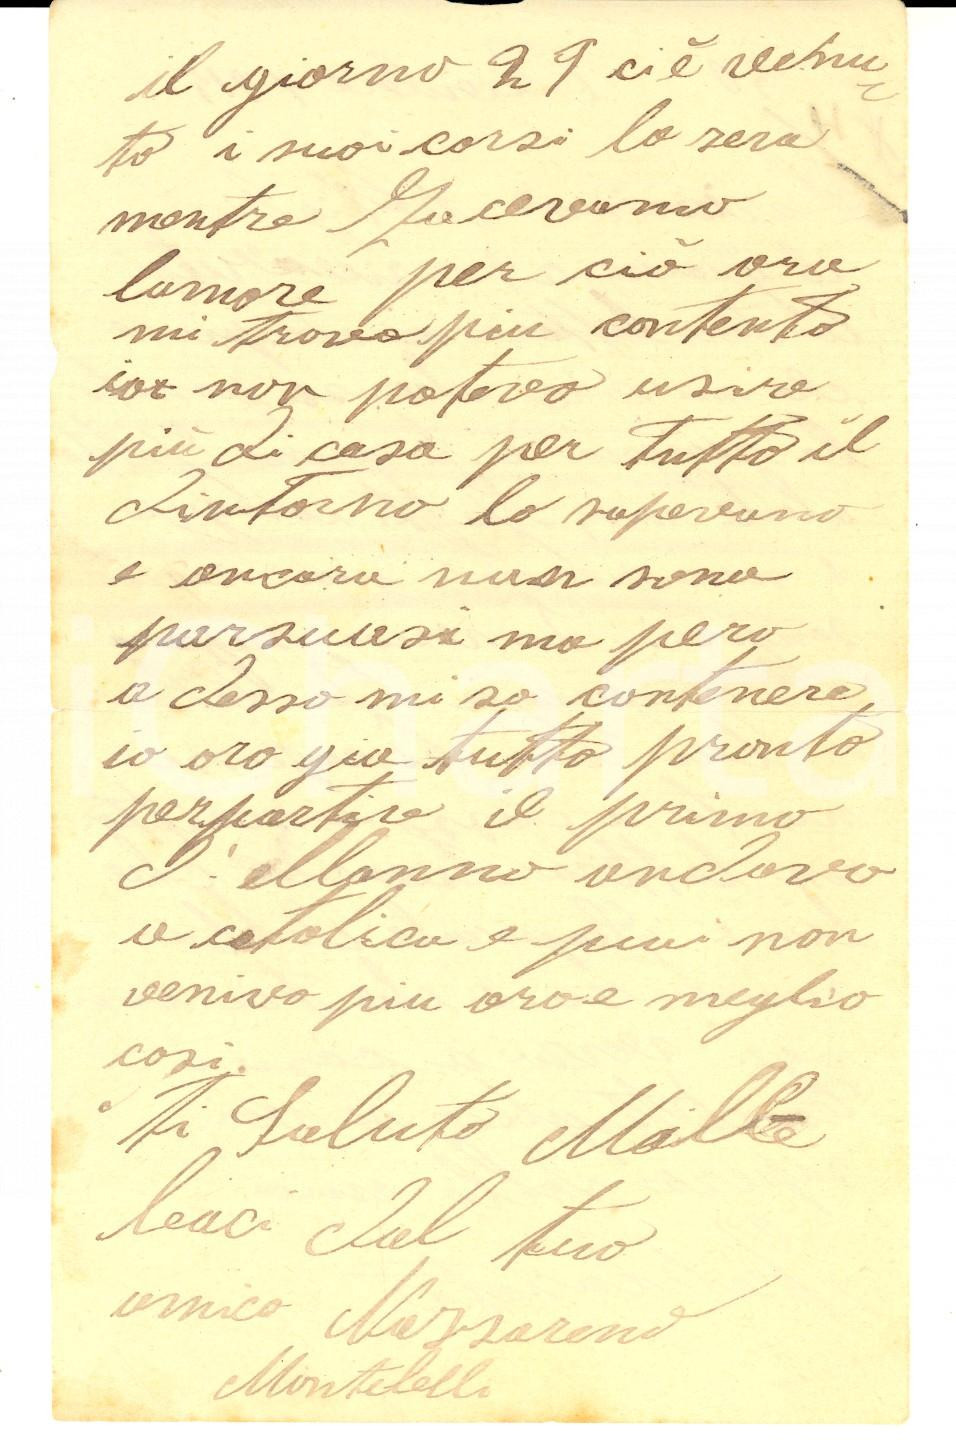 il giorno 29 ci è venu-
to i suoi corsi la sera
mentre facevamo
lamore per ciò ora
mi trovo piu contento
non potevo usire
più di casa per tutto il
dintorno lo sapevano
e ancora non sono
parsuasi ma pero
a desso mi so contenere
io ero gia tutto pronto
per partire il primo
d'ellanno andavo
a catolica e puoi non
venivo piu ora e meglio
cosi.
Ti Saluto Mille
beaci dal tuo
amico Nazzareno
Montebelli
iCharta